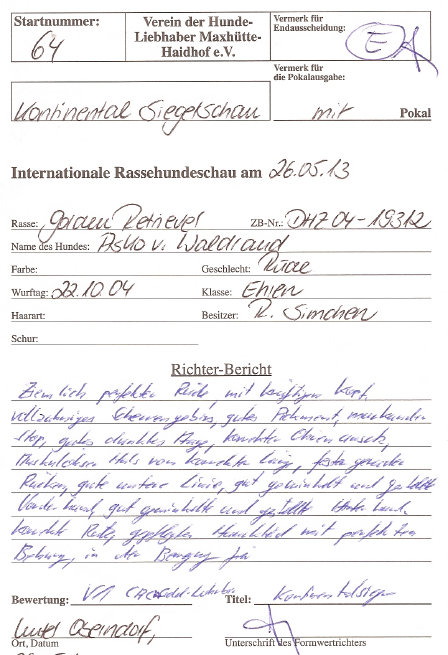 Startnummer: 64
Verein der Hunde-
Liebhaber Maxhütte-
Haidhof e.V.
Vermerk für
Endausscheidung: E
Vermerk für
die Pokalausgabe:
Kontinental Siegerschau
mit Pokal
Internationale Rassehundeschau am 26.05.13
Rasse: Golden Retriever ZB-Nr.: DHZ 04-19312
Name des Hundes: Asko v. Waldrand
Farbe: Geschlecht: Rüde
Wurftag: 22.10.04 Klasse: Ehren
Haarart: Besitzer: R. Simchen
Schur:
Richter-Bericht
Ziemlich perfekter Rüde, mit kräftigem Kopf,
vollzahniges Scherengebiss, gutes Pigment, markanten
Stop, gutes dunkles Auge, korrekten Ohrenansatz,
Muskulösen Hals von korrekter Länge, festen geraden
Rücken, gute untere Linie, gut gewinkelt und gestellte
Vorderhand, gut gewinkelte und gestellte Hinterhand,
korrekte Rute, gepflegtes Haarkleid mit perfekter
in der Bewegung
Bewertung: V1 Titel: Kontinentalsieger
Ort, Datum Unterschrift des Formwertrichters